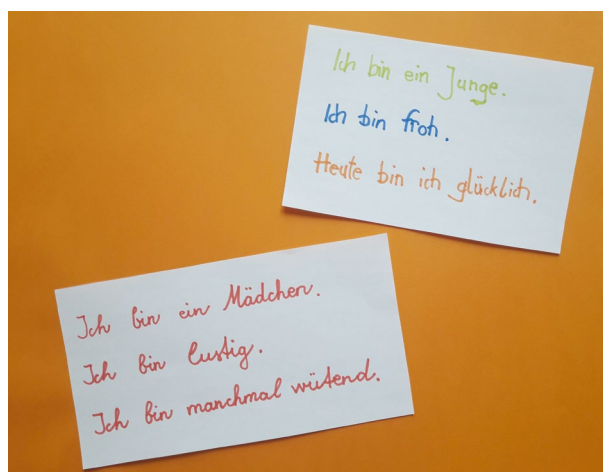 Ich bin ein Junge.
Ich bin froh.
Heute bin ich glücklich.
Ich bin ein Mädchen.
Ich bin lustig.
Ich bin manchmal wütend.